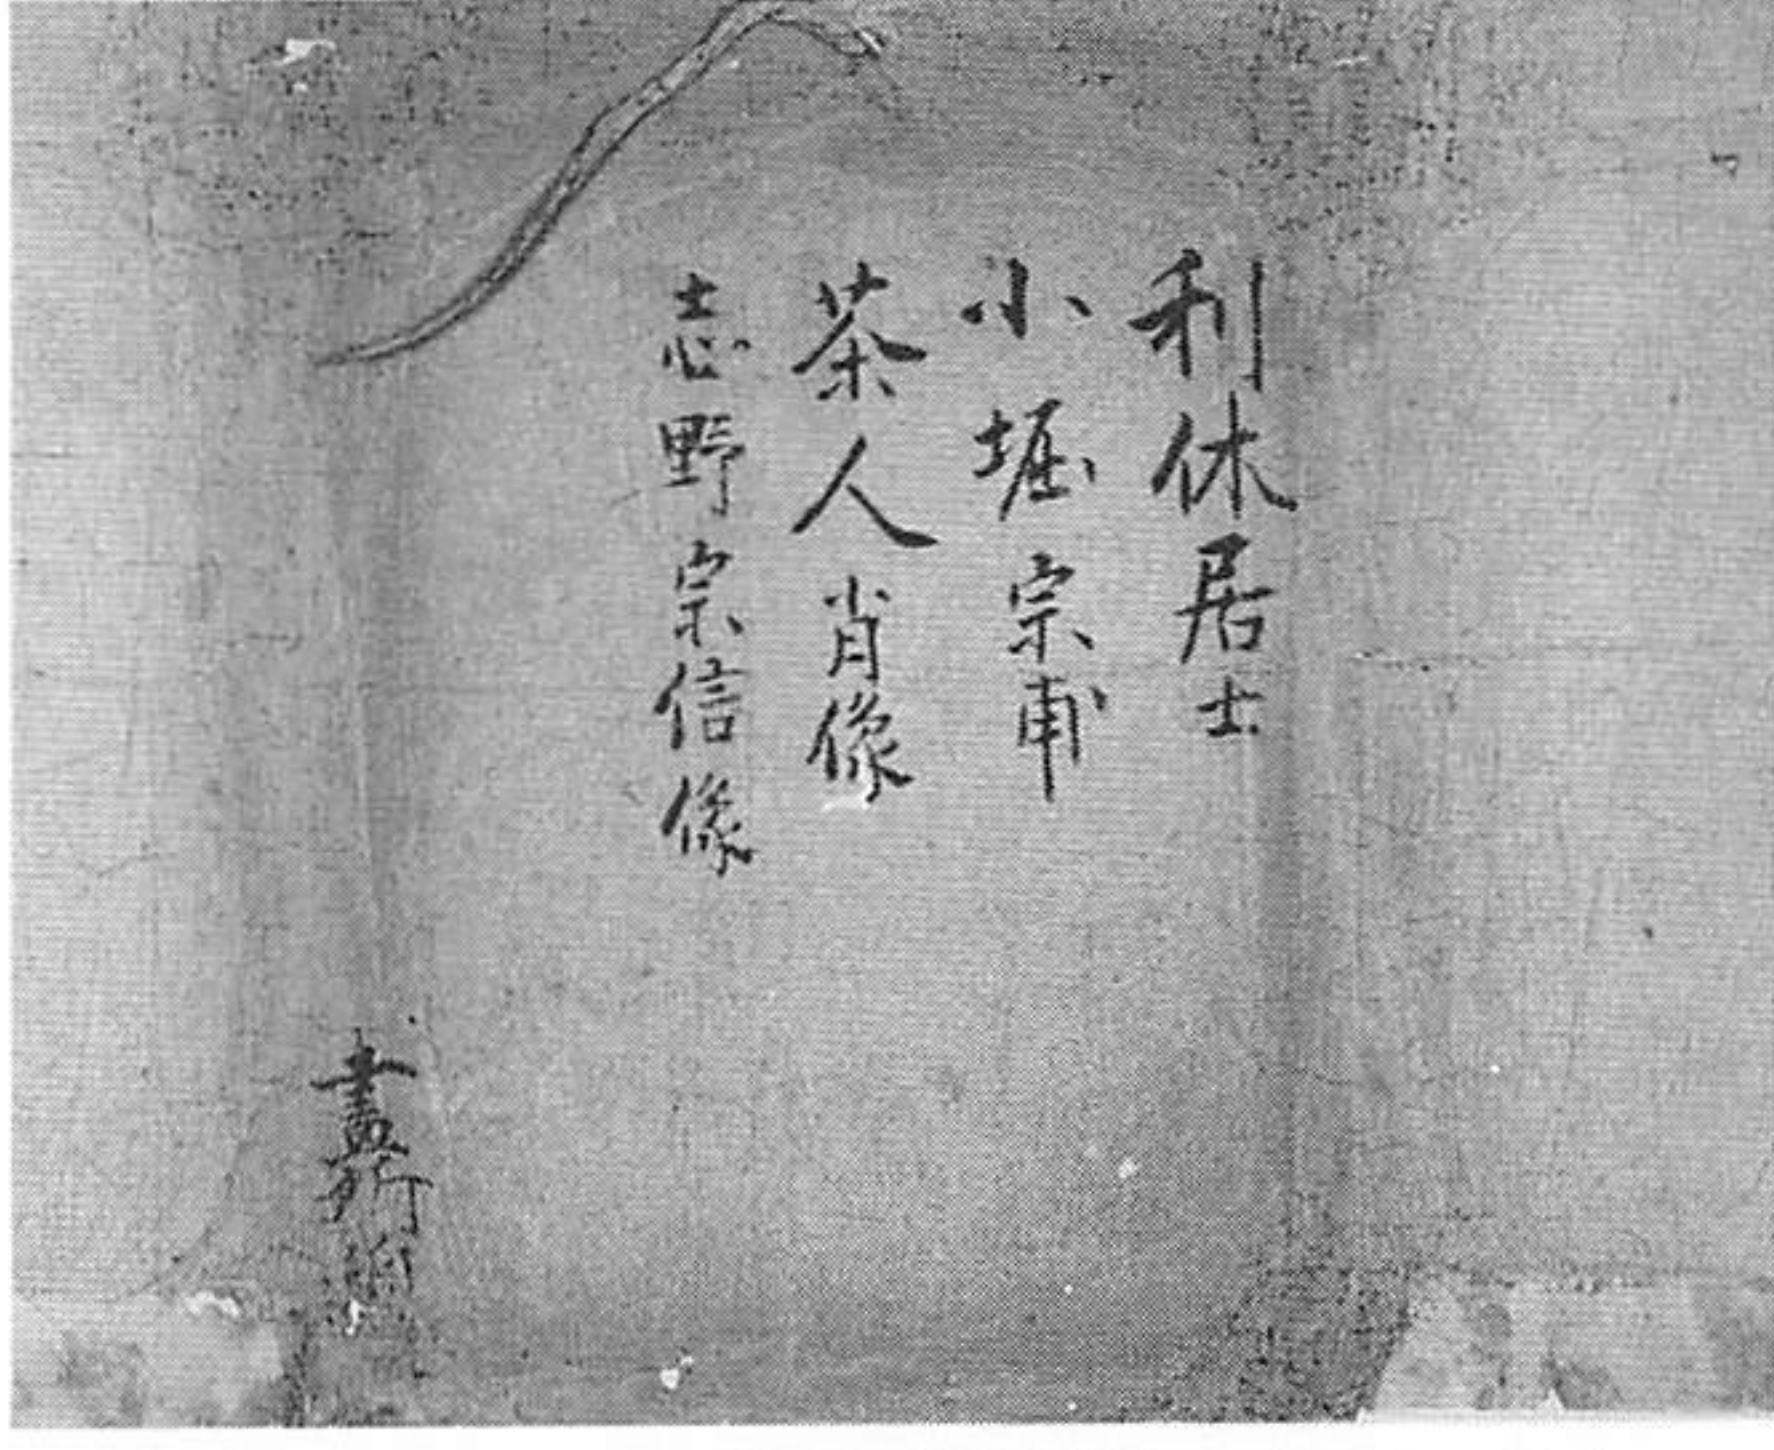 利休居士
小堀宗甫
茶人肖像
志野宗信像